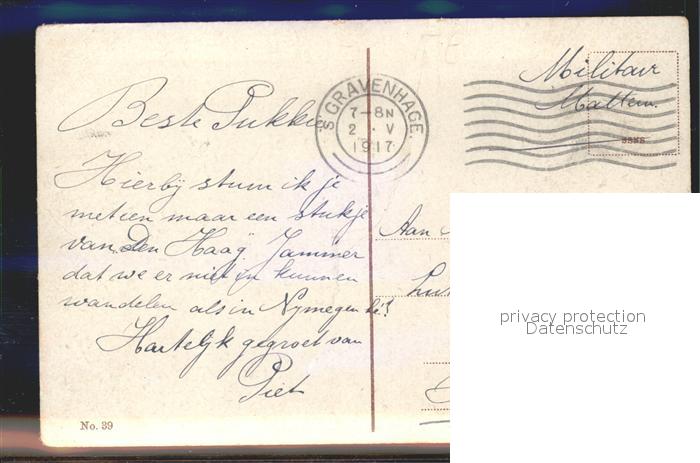 Beste Pukkie
Hierbij stuur ik je
meteen maar een stukje
van Den Haag. Jammer
dat we er niet in kunnen
wandelen als in Nijmegen hè!
Hartelijk gegroet van
Piet
No. 39
'S GRAVENHAGE.
7-8N
2 . V
1917
Militair
Aan
privacy protection
Datenschutz